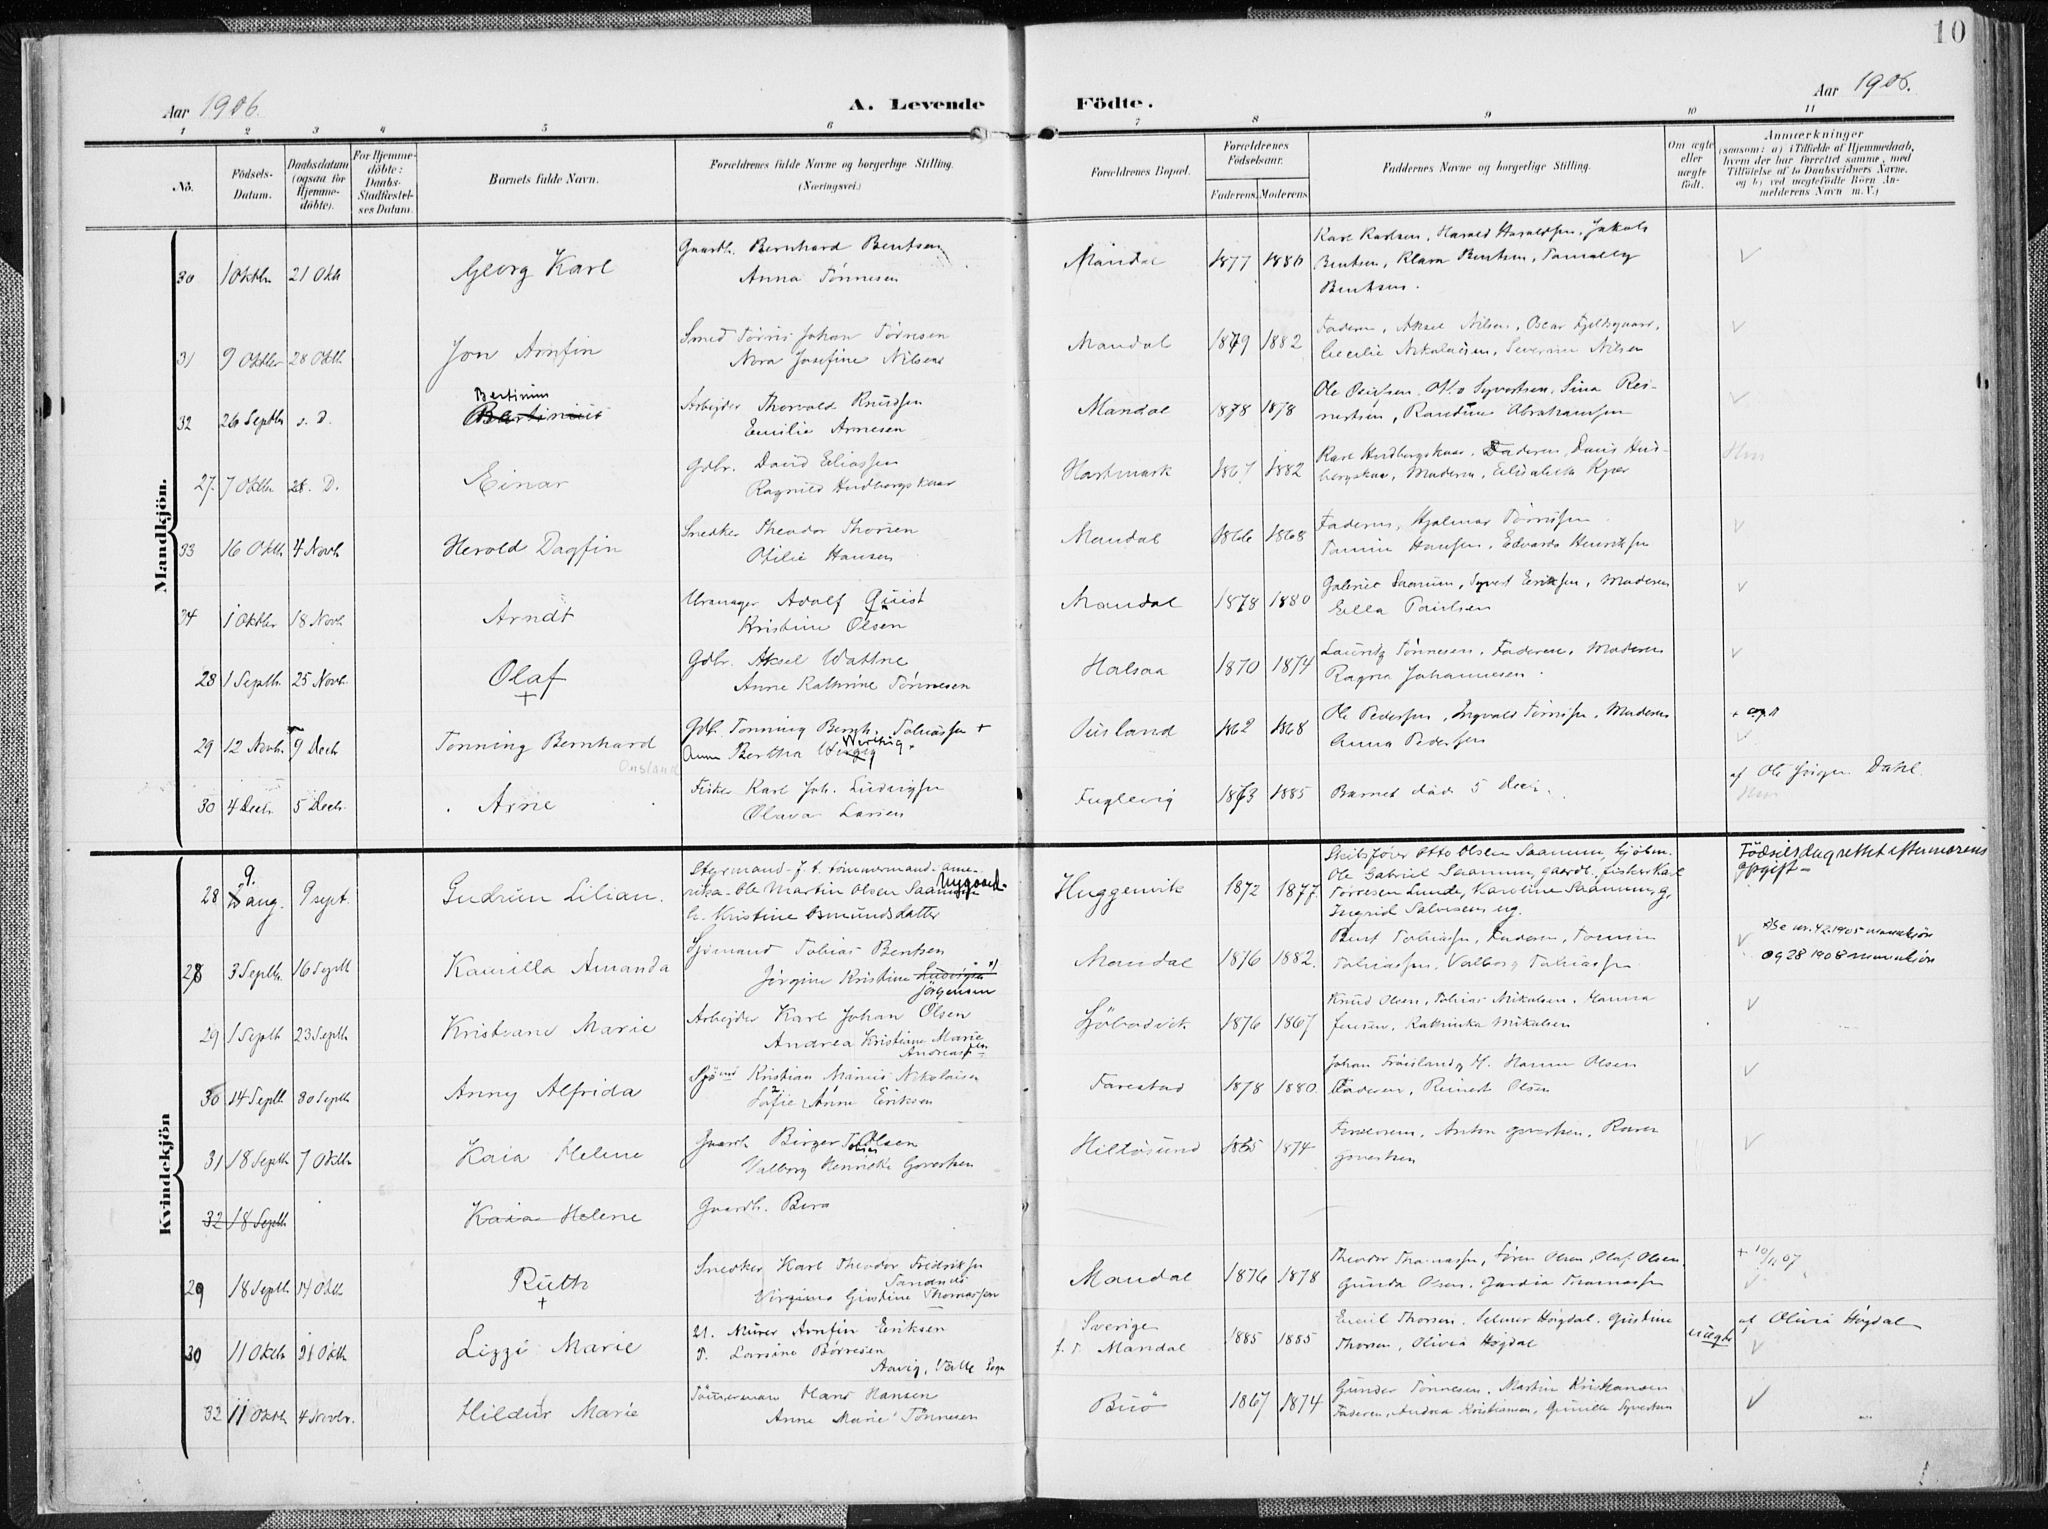 10
Aar 1906.
A. Levende Födte.
Aar 1906.
1 2 3 4 5 6 7 8 9 10 11
Nö.
Födsels-
Datum.
Daabsdatum
(ogsaa for
Hjemme-
döbte).
For Hjemme-
döbte:
Daabs-
Stadfæstel-
ses Datum.
Barnets fulde Navn.
Forældrenes fulde Navne og borgerlige Stilling.
(Næringsvei.)
Forældrenes Bopæl.
Forældrenes
Födselsaar.
Faderens. Moderens.
Faddernes Navne og borgerlige Stilling.
Om ægte
eller
uægte
födt.
Anmærkninger
(saasom: a) i Tilfælde af Hjemmedaab,
hvem der har forrettet samme, med
Tilföielse af to Daabsvidners Navne.
og b) ved uægtefödte Börn An-
melderens Navn m. V.)
Mandkjön.
30 1 Oktbr 21 Okt Georg Karl
Gaardb. Bernhard Bentsen
Anna Tønnesen
Mandal 1877 1880
Karl Karlsen, Harald Haraldsen, Jakob
Bentsen, Klara Bentsen,
Bentsen.
31 9 Oktbr 28 Oktb Jon Arnfin
Smed Tørris Johan Tørresen
Nora Josefine Nilsen
Mandal 1879 1882
Faderen, Aksel Nilsen, Oscar
Cecilie Nikolaisen, Severine Nilsen
32 26 Septbr s. D. Bertinius
Arbejder Thorvald Knudsen
Emilie Arnesen
Mandal 1878 1878
Ole Otto Syvertsen, Sina Rei-
nertsen, Randine Abrahamsen
27. 7 Oktb 28. D. Einar
Gdbr. David Eliassen
Ragnild
Hartmark 1867 1882
Karl Faderen,
Moderen, Elisabeth Kjær
33 16 Oktb 4 Novb Herold Dagfin
Snedker Theodor Thorsen
Otilie Hansen
Mandal 1866 1868
Faderen, Hjalmar
Hansen, Edvarda Henriksen
34 1 Oktbr 18 Novb Arndt
Urmager Adolf Quist
Kristine Olsen
Mandal 1878 1880
Gabriel Saanum, Syvert Eriksen, Moderen
Ella Paulsen
28 1 Septb 25 Novb. Olaf
+
Gdbr. Aksel Wattne
Anne Kathrine Tønnesen
Halsaa 1870 1874
Lauritz Tønnesen, Faderen, Moderen
Ragna Johannesen.
29 12 Novb. 9 Decb Tonning Bernhard
Gdb. Tonning Bernh. Tobiassen +
Anne Bertha
1862 1868
Ole Pedersen, Ingvald Moderen
Anna Pedersen
30 4 Decb 5 Decb. Arne
Fisker Karl Joh. Ludvigsen
Olava Larsen
Fuglevig 1873 1885
Barnet døde 5 Decb.
af Ole Jörgen Dahl.
Kvindekjön
28 9. aug. 9 sept. Gudrun Lilian.
Styrmand f. t. tömmermand Ame-
rika Ole Martin Olsen Saanum Nygaard
h. Kristine Osmundsdatter
Huggenvik 1872 1877.
Skibsfører Otto Olsen Saanum, hjöbm.
Ole Gabriel Saanum, gaardb. fisker Karl
Tørresen Lunde, Karoline Saanum, g,
Ingrid Salvesen ug.
Födselsdag rettet efter morens
opgift
28 3 Septb 16 Septb Kamilla Amanda
Sjömand Tobias Bentsen
Jörgine Kristine
Jörgensen
Mandal 1876 1882.
Bent Tobiassen, Faderen,
Tobiassen, Valborg Tobiassen
Se nr. 42 1905 mandkjön
og 28 1908 mandkjön
29 1 Septb 23 Septb Kristiane Marie
Arbejder Karl Johan Olsen
Andrea Kristiane Marie
1876 1867
Knud Olsen, Tobias Mikalsen, Hanna
Jensen, Kathinka Mikalsen
30 14 Septb. 30 Septb Anny Alfrida
Sjömd Kristian Marius Nikolaisen
Sofie Anne Eriksen
Farestad 1878 1880.
Johan Hanne Olsen
Faderen, Reinert Olsen
31 18 Septb 7 Oktb Kaia Helene
Gaardb Birger Tobias Olsen
Valborg Henrikke Govertsen
Hiltøsund 1865 1874
Faderen, Anton Govertsen,
Govertsen
32 18 Septb Kaia Helene
Gaardb. Birg
29 18 Septb 14 Oktb Ruth
+
Snedker Karl Theodor Fredriksen
Sandnes
Virginia Gustine Thomassen
Mandal 1876 1878
Theodor Thomassen, Søren Olsen, Olaf Olsen
Gunda Olsen, Thomassen
+ 10/11 07
30 11 Oktb. 21 Oktb Lizzi Marie
U. Murer Arnfin Eriksen
P. Larsine Børresen
Aavig, Valle Sogn
Sverige
f. T. Mandal 1885 1885
Emil Thorsen, Selmer Høigdal, Gustine
Thorsen, Olivia Høgdal
uægte
af Olivia Høgdal
32 11 Oktb. 4 Novbr. Hildur Marie
Tömmerman Hans Hansen
Anne Marie Tønnesen
Buö 1867 1874
Gunder Tønnesen, Martin Kristiansen
Faderen, Andrea Kristiansen, Gunille Syvertsen